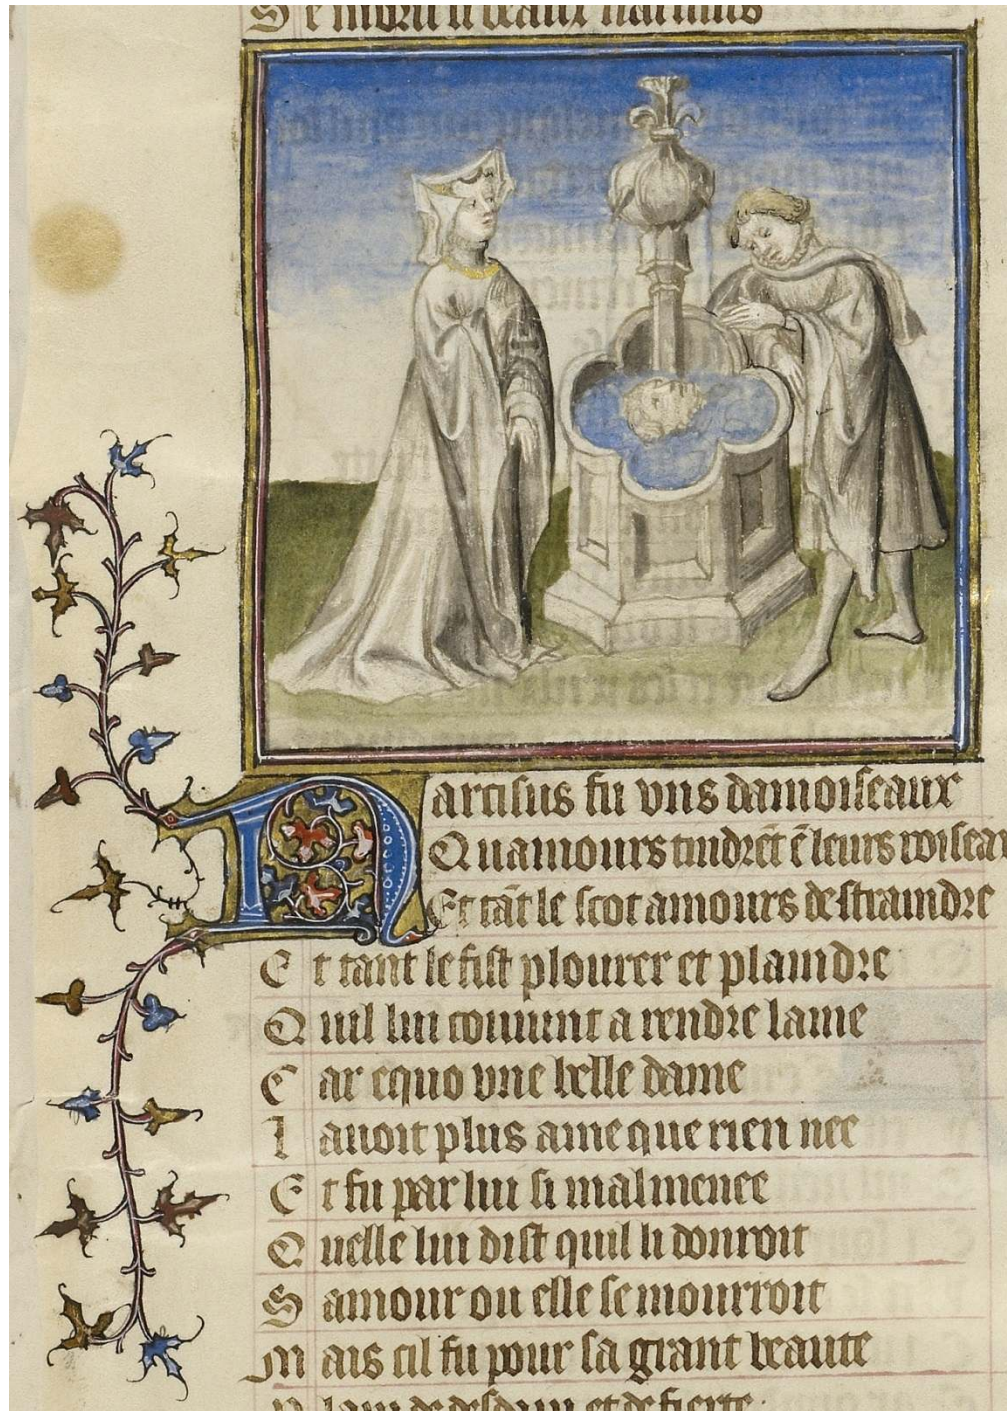 Se mori li beaux narcisus
Narcisus fu vns damoiseaux
Quamours tindrēt ē leurs roiseau
Et tāt le scot amours destraindre
Et tant le fist plourer et plaindre
Quil lui conuint a rendre lame
Car equo vne belle dame
Lauoit plus ame que rien nee
Et fu par lui si malmenee
Quelle lui dist quil li donroit
Samour ou elle se mourroit
Mais cil fu pour sa grant beaute
Plain de desdain et de fierte